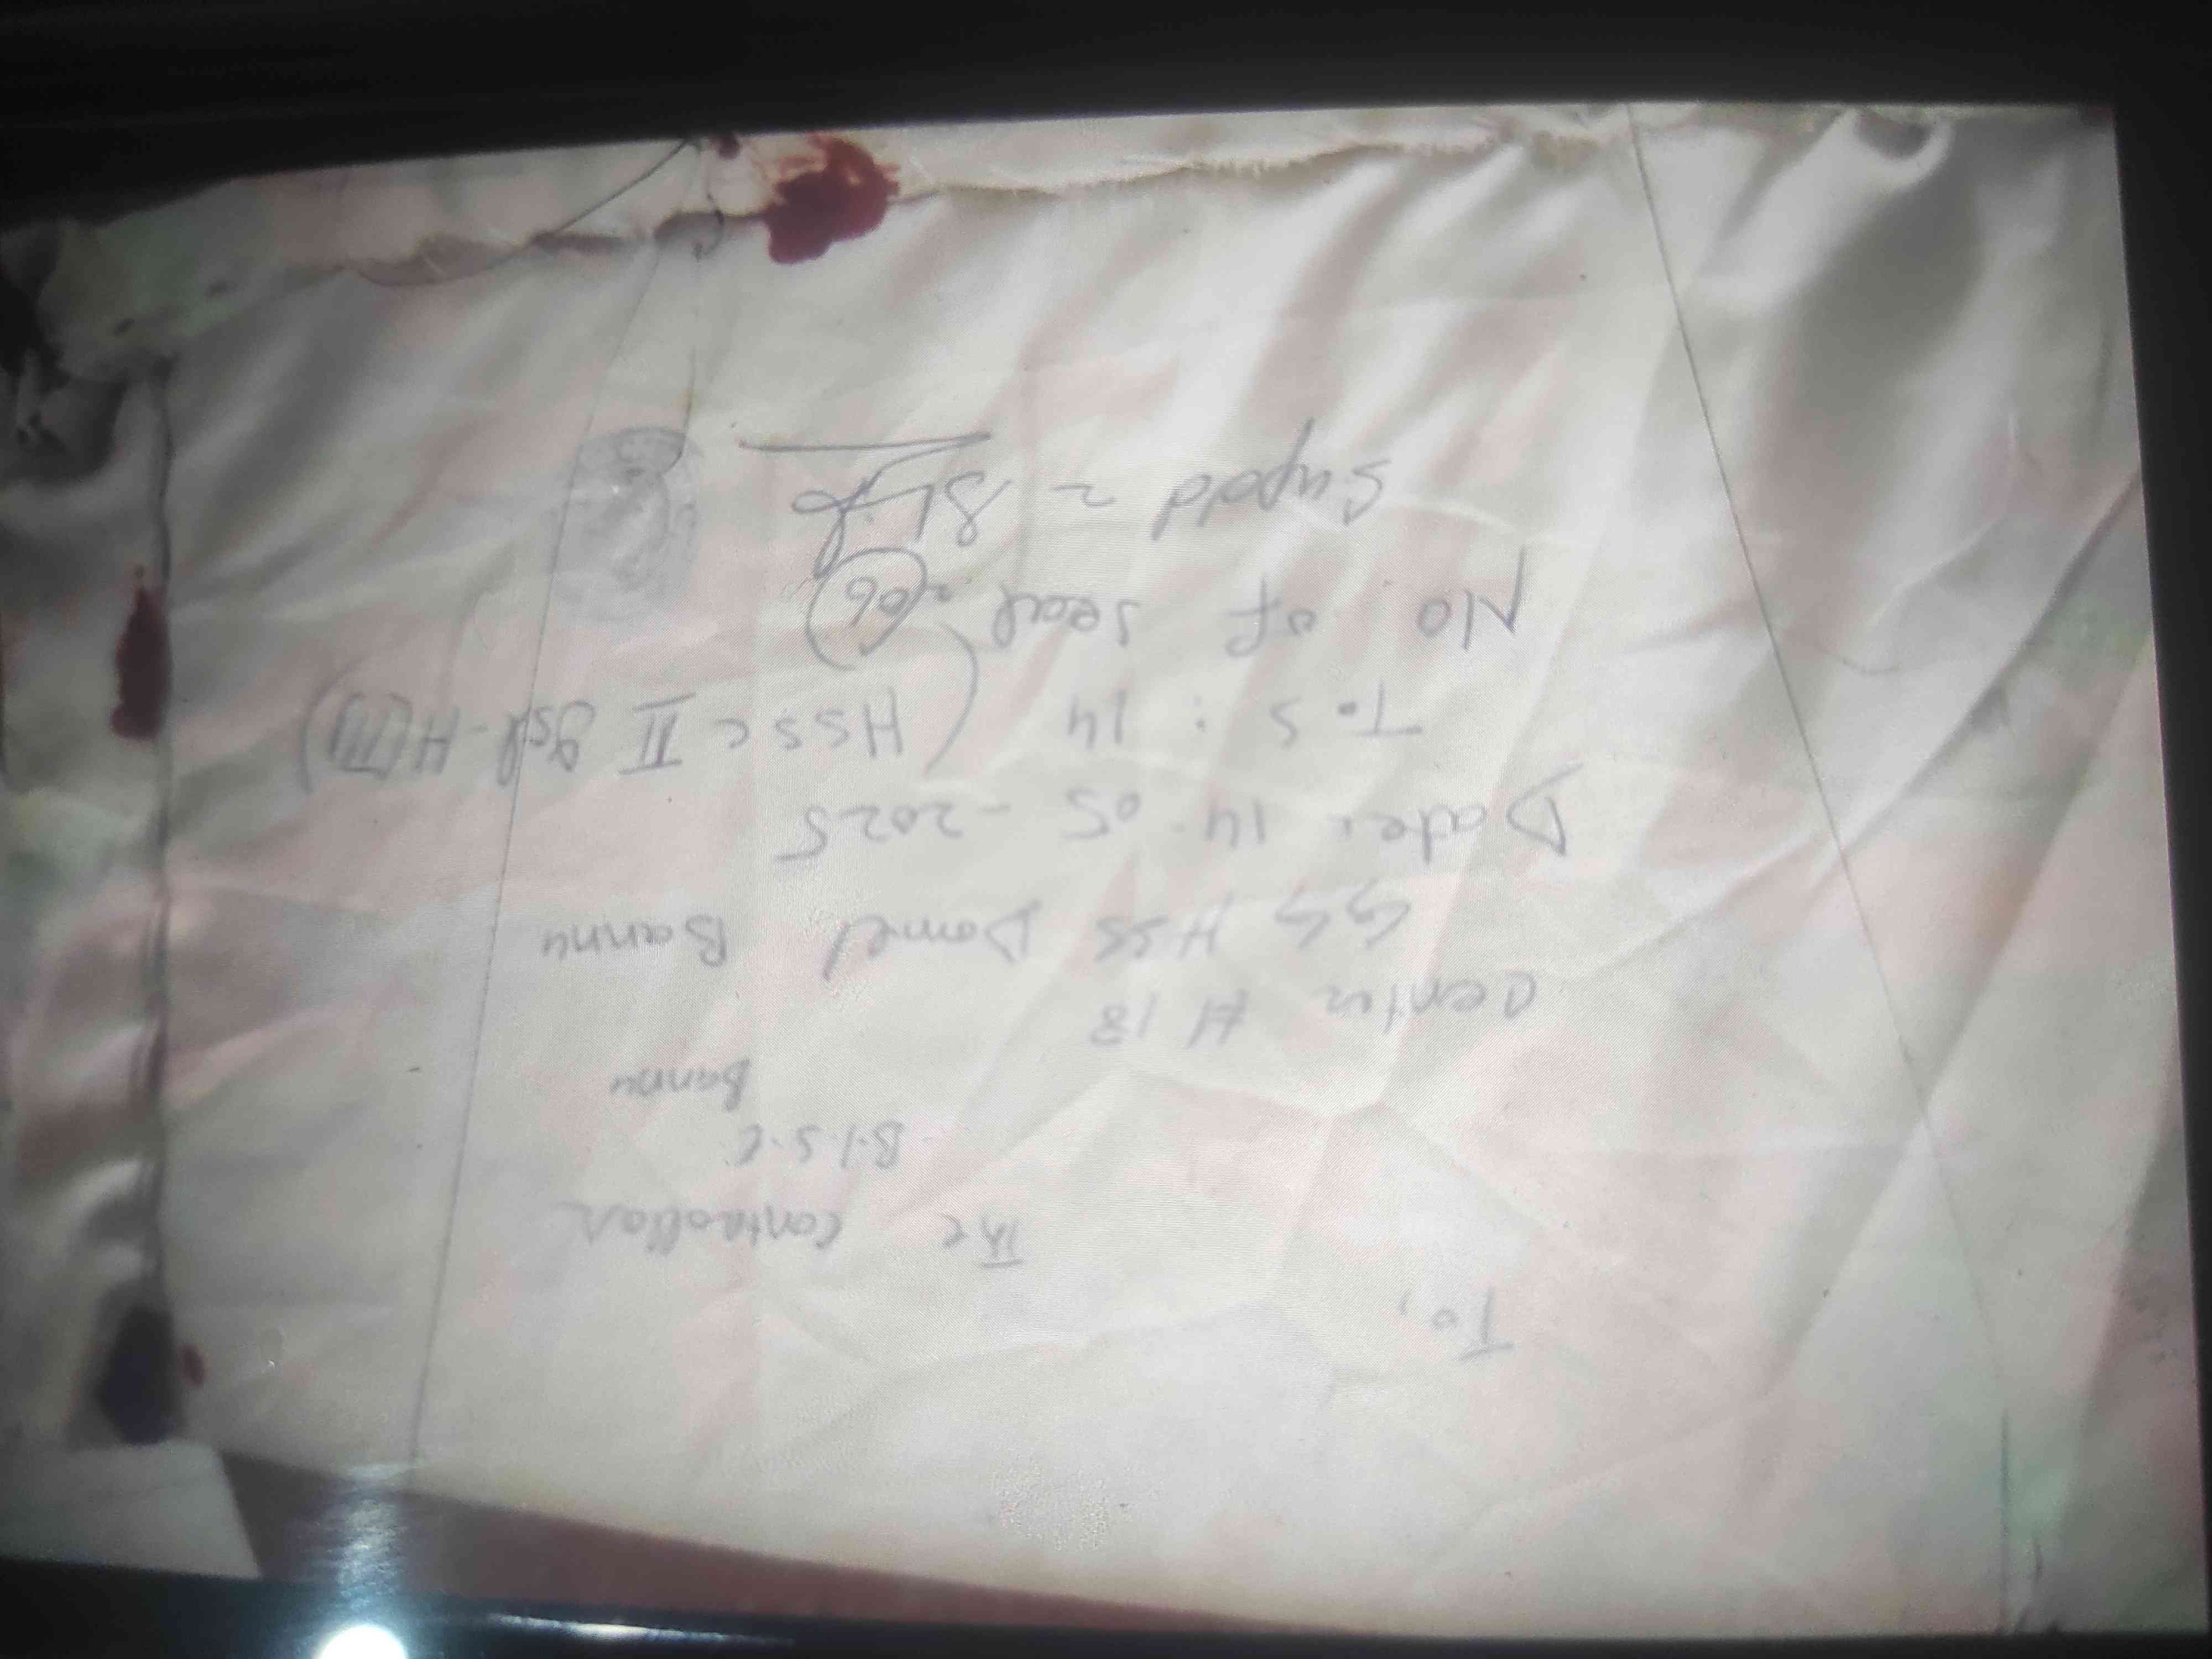 To,
The Controller
B.I.S.E
Bannu
Center # 18
GG HSS Domel Bannu
Date: 14-05-2025
T.S : 14 (HSSC II Isl-H(M))
No of seal = 06
Supdd =